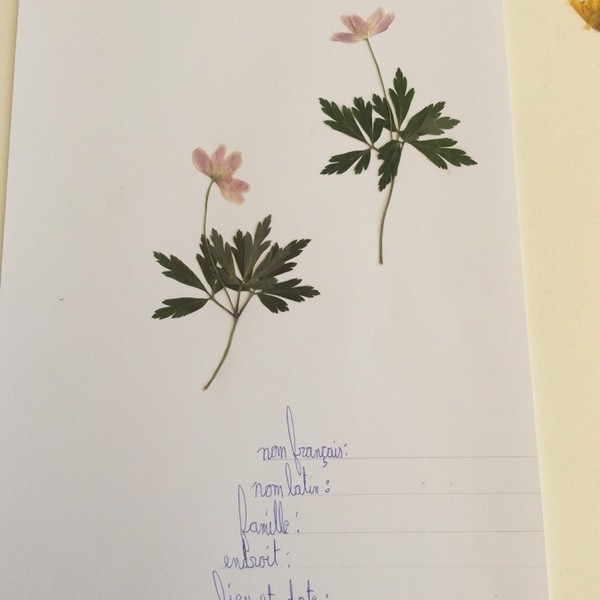 nom français:
nom latin:
famille:
endroit:
lieu et date: